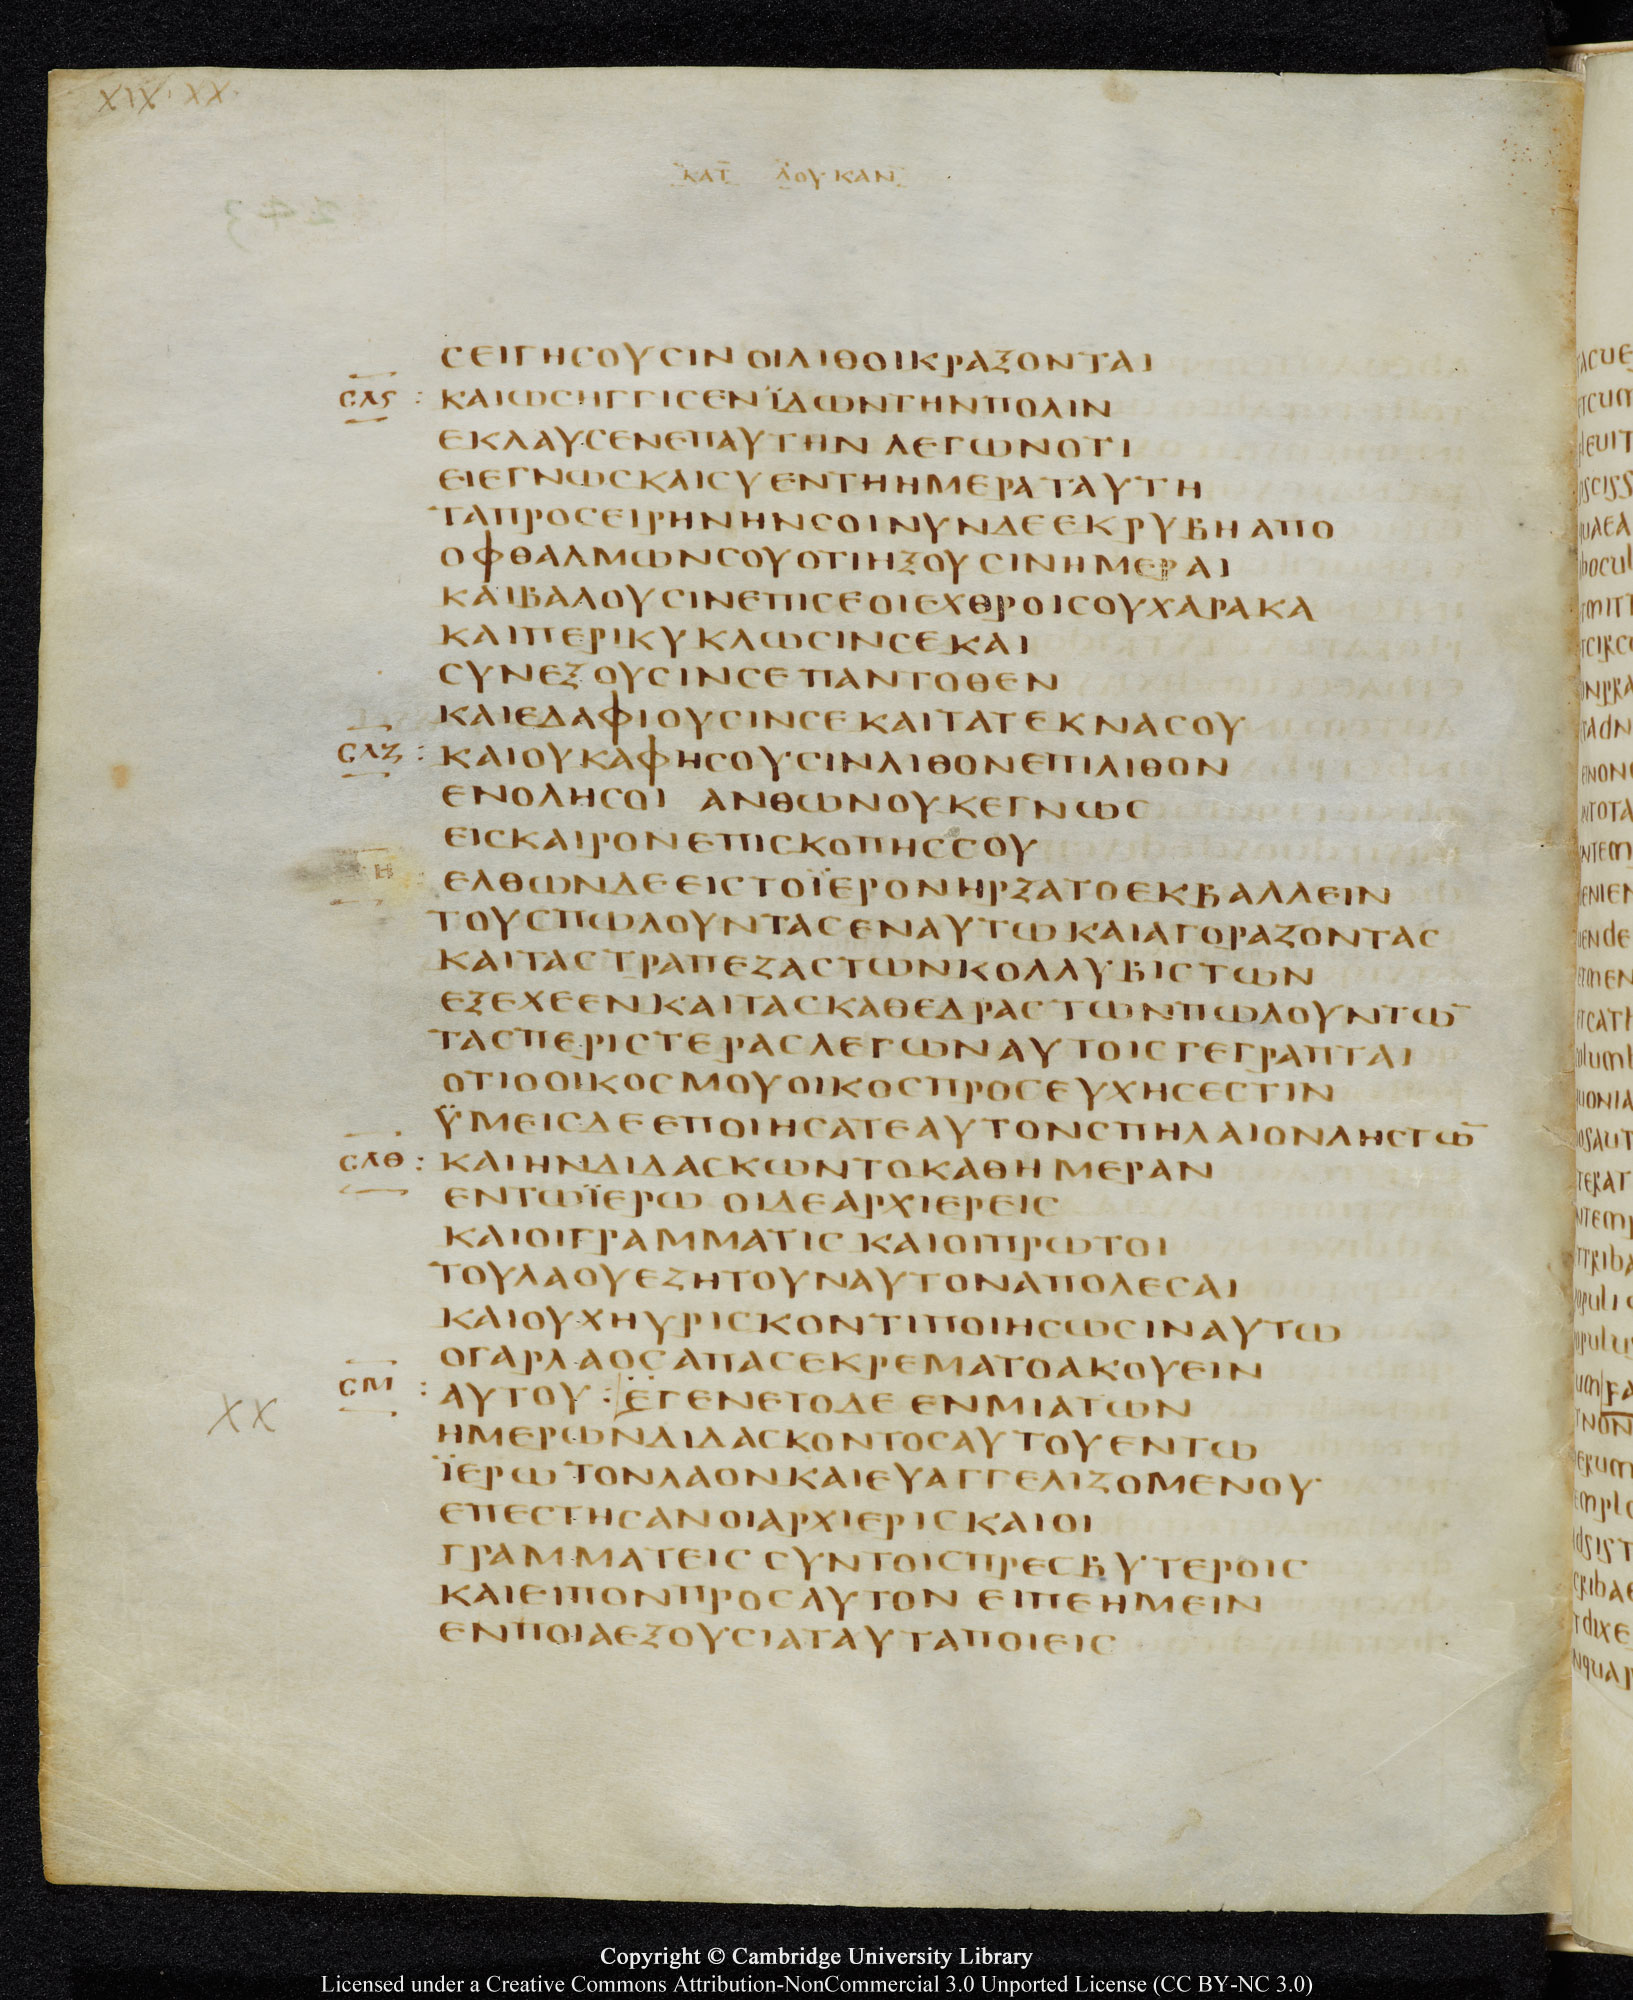 XIX. XX.
ΚΑΤ ΛΟΥΚΑΝ
ϹΕΙΓΗϹΟΥϹΙΝ ΟΙΛΙΘΟΙΚΡΑΞΟΝΤΑΙ
ϹΛϚ : ΚΑΙΩϹΗΓΓΙϹΕΝΪΔΩΝΤΗΝΠΟΛΙΝ
ΕΚΛΑΥϹΕΝΕΠΑΥΤΗΝ ΛΕΓΩΝΟΤΙ
ΕΙΕΓΝΩϹΚΑΙϹΥ ΕΝΤΗΗΜΕΡΑ ΤΑΥΤΗ
ΤΑΠΡΟϹΕΙΡΗΝΗΝϹΟΙΝΥΝΔΕΕΚΡΥΒΗ ΑΠΟ
ΟΦΘΑΛΜΩΝϹΟΥ ΟΤΙΗΞΟΥϹΙΝΗΜΕΡΑΙ
ΚΑΙΒΑΛΟΥϹΙΝΕΠΙϹΕΟΙΕΧΘΡΟΙϹΟΥΧΑΡΑΚΑ
ΚΑΙΠΕΡΙΚΥΚΛΩϹΙΝϹΕΚΑΙ
ϹΥΝΕΞΟΥϹΙΝϹΕ ΠΑΝΤΟΘΕΝ
ΚΑΙΕΔΑΦΙΟΥϹΙΝϹΕ ΚΑΙΤΑΤΕΚΝΑϹΟΥ
ϹΛΖ : ΚΑΙΟΥΚΑΦΗϹΟΥϹΙΝΛΙΘΟΝΕΠΙΛΙΘΟΝ
ΕΝΟΛΗϹΟΙ ΑΝΘΩΝΟΥΚΕΓΝΩϹ
ΕΙϹΚΑΙΡΟΝΕΠΙϹΚΟΠΗϹϹΟΥ
Η ΕΛΘΩΝΔΕΕΙϹΤΟΪΕΡΟΝΗΡΞΑΤΟΕΚΒΑΛΛΕΙΝ
ΤΟΥϹΠΩΛΟΥΝΤΑϹΕΝΑΥΤΩΚΑΙΑΓΟΡΑΖΟΝΤΑϹ
ΚΑΙΤΑϹΤΡΑΠΕΖΑϹΤΩΝΚΟΛΛΥΒΙϹΤΩΝ
ΕΞΕΧΕΕΝΚΑΙΤΑϹΚΑΘΕΔΡΑϹΤΩΝΠΩΛΟΥΝΤΩ̅
ΤΑϹΠΕΡΙϹΤΕΡΑϹΛΕΓΩΝΑΥΤΟΙϹΓΕΓΡΑΠΤΑΙ
ΟΤΙΟΟΙΚΟϹΜΟΥΟΙΚΟϹΠΡΟϹΕΥΧΗϹΕϹΤΙΝ
ΫΜΕΙϹΔΕΕΠΟΙΗϹΑΤΕΑΥΤΟΝϹΠΗΛΑΙΟΝΛΗϹΤΩ̅
ϹΛΘ : ΚΑΙΗΝΔΙΔΑϹΚΩΝΤΟΚΑΘΗΜΕΡΑΝ
ΕΝΤΩΪΕΡΩ ΟΙΔΕΑΡΧΙΕΡΕΙϹ
ΚΑΙΟΙΓΡΑΜΜΑΤΙϹ ΚΑΙΟΙΠΡΩΤΟΙ
ΤΟΥΛΑΟΥΕΖΗΤΟΥΝΑΥΤΟΝΑΠΟΛΕϹΑΙ
ΚΑΙΟΥΧΗΥΡΙϹΚΟΝΤΙΠΟΙΗϹΩϹΙΝΑΥΤΩ
ΟΓΑΡΛΑΟϹΑΠΑϹΕΚΡΕΜΑΤΟΑΚΟΥΕΙΝ
XX ϹΜ : ΑΥΤΟΥ : ΕΓΕΝΕΤΟΔΕ ΕΝΜΙΑΤΩΝ
ΗΜΕΡΩΝΔΙΔΑϹΚΟΝΤΟϹΑΥΤΟΥΕΝΤΩ
ΪΕΡΩ ΤΟΝΛΑΟΝΚΑΙΕΥΑΓΓΕΛΙΖΟΜΕΝΟΥ
ΕΠΕϹΤΗϹΑΝΟΙΑΡΧΙΕΡΙϹΚΑΙΟΙ
ΓΡΑΜΜΑΤΕΙϹ ϹΥΝΤΟΙϹΠΡΕϹΒΥΤΕΡΟΙϹ
ΚΑΙΕΙΠΟΝΠΡΟϹΑΥΤΟΝ ΕΙΠΕΗΜΕΙΝ
ΕΝΠΟΙΑΕΞΟΥϹΙΑΤΑΥΤΑΠΟΙΕΙϹ
Copyright © Cambridge University Library
Licensed under a Creative Commons Attribution-NonCommercial 3.0 Unported License (CC BY-NC 3.0)